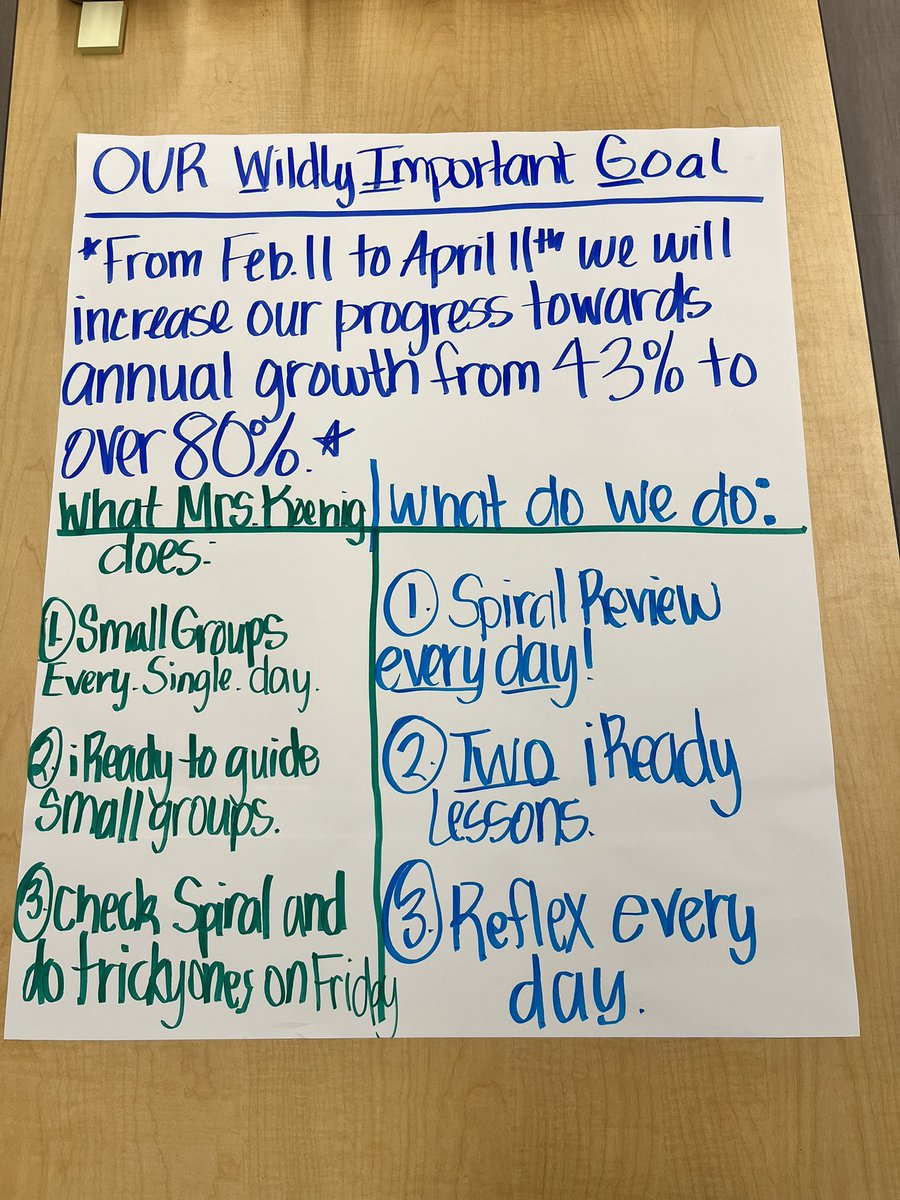 OUR Wildly Important Goal
*From Feb. 11 to April 11th we will
increase our progress towards
annual growth from 43% to
over 80%.*
What Mrs. Koenig
does:
1. Small Groups
Every. Single. day.
2. iReady to guide
Small groups.
3. Check Spiral and
do tricky ones on Friday
What do we do:
1. Spiral Review
every day!
2. Two iReady
Lessons.
3. Reflex every
day.